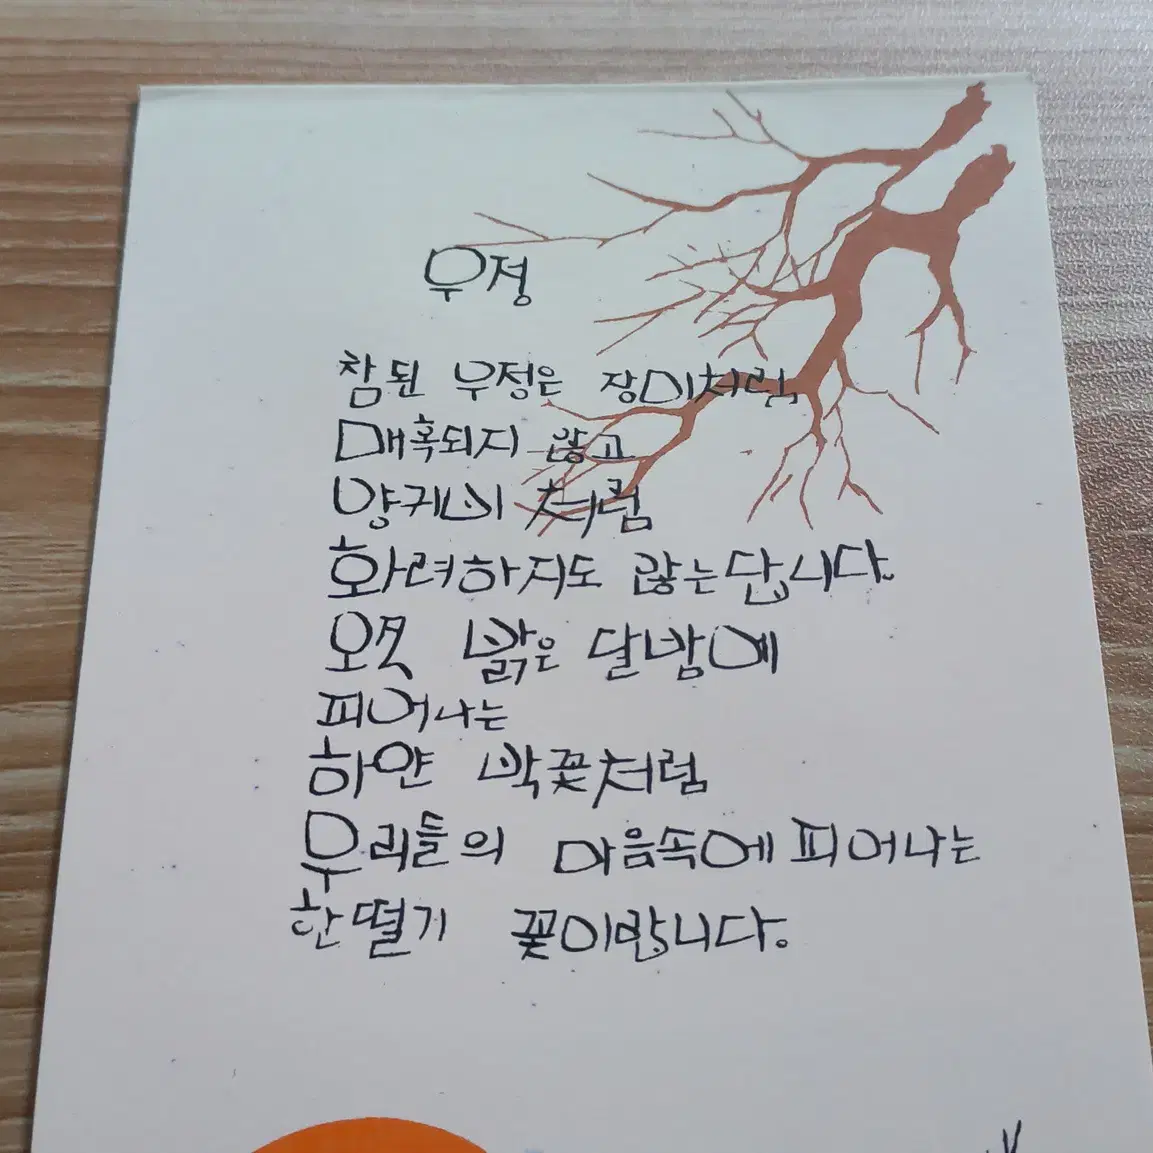 우정
참된 우정은 장미처럼
매혹되지 않고
양귀비 처럼
화려하지도 않는답니다.
오직 밝은 달밤에
피어나는
하얀 박꽃처럼
우리들의 마음속에 피어나는
한떨기 꽃이랍니다.